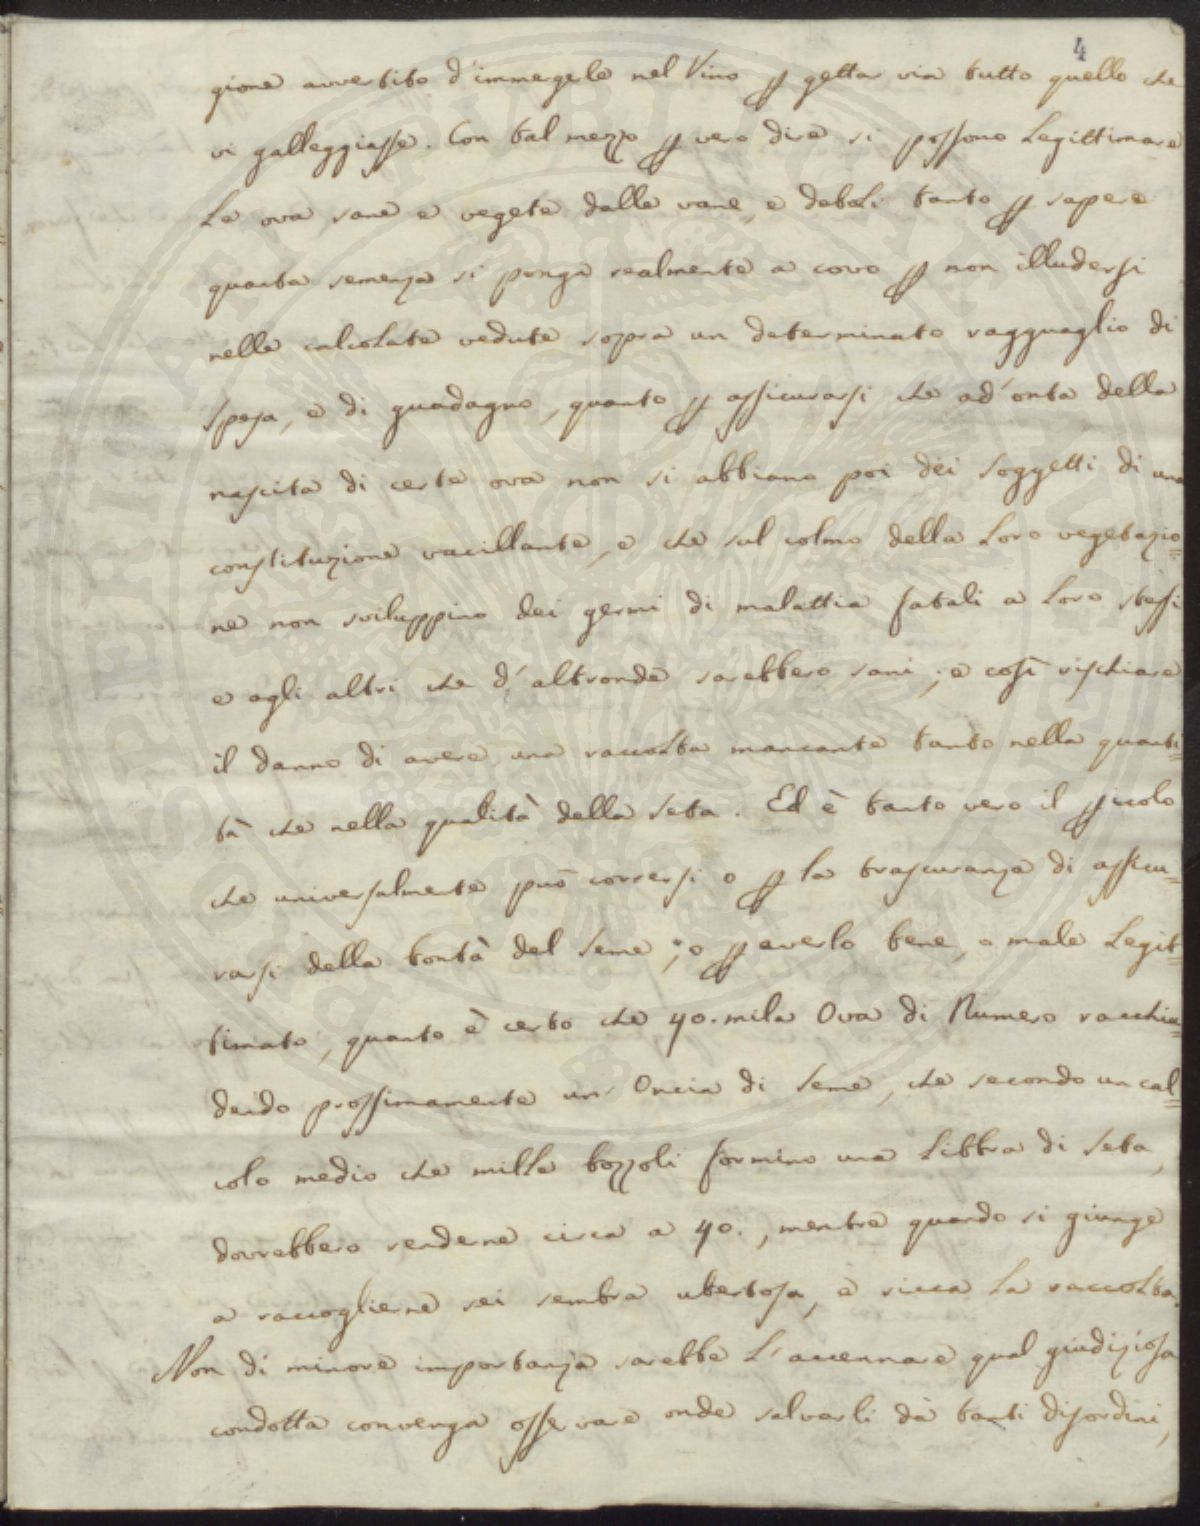 4
gione avvertito d'immergerle nel Vino p gettar via tutto quello che
vi galleggiasse. Con tal mezzo p vero dire si possono Legittimare
Le ova sane e vegete dalle vane, e deboli tanto p sapere
quanta semenza si ponga realmente a covo p non illudersi
nelle calcolate vedute sopra un determinato ragguaglio di
spesa, e di guadagno, quanto p assicurarsi che ad'onta della
nascita di certe ova non si abbiano poi dei soggetti di una
constituzione vacillante, e che sul colmo della Loro vegetazio=
ne non sviluppino dei germi di malattia fatali a Loro stessi
e agli altri che d'altronde sarebbero sani; e così rischiare
il danno di avere una raccolta mancante tanto nella quanti=
tà che nella qualità della Seta. Ed è tanto vero il picolo
che universalmente può corrersi o p la trascuranza di assicu=
rarsi della bontà del Seme; o p averlo bene, o male Legit=
timato, quanto è certo che 40. mila Ova di Numero racchiu=
dendo prossimamente un' Oncia di Seme, che secondo un cal=
colo medio che mille bozzoli formino una Libbra di Seta,
dovrebbero renderne circa a 40., mentre quando si giunge
a raccoglierne sei sembra ubertosa, e ricca La raccolta.
Non di minore importanza sarebbe L'accennare qual giudiziosa
condotta convenga osservare onde salvarli dà tanti disordini,